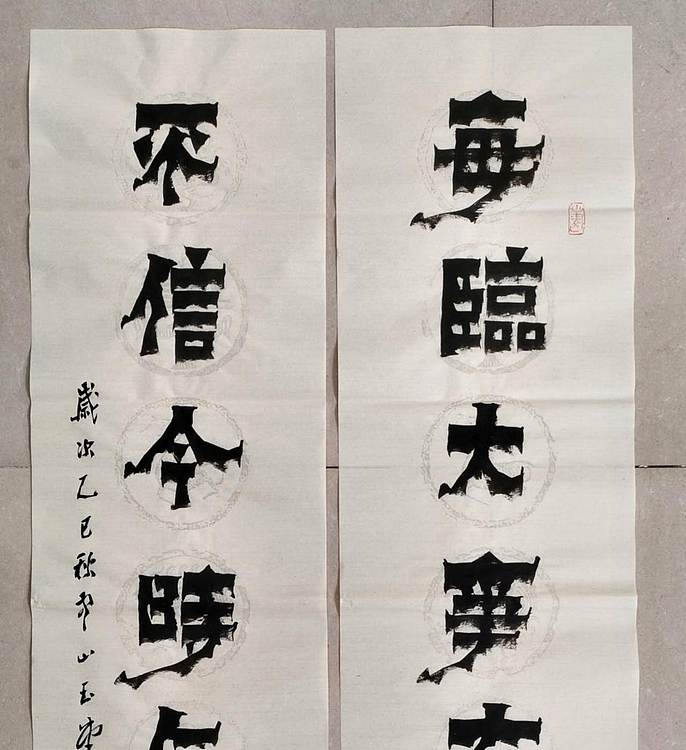 每臨大事
不信今時
歲次乙巳秋山玉